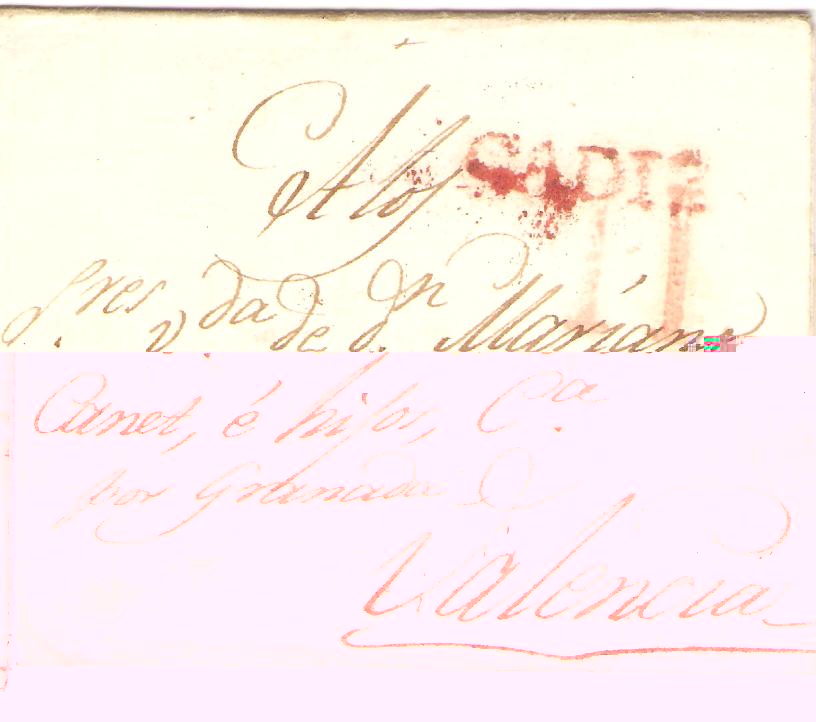 A los
CADIZ
11
Sres V.da de d.n Mariano
Canet, é hijos, C.a
por Granada
Valencia